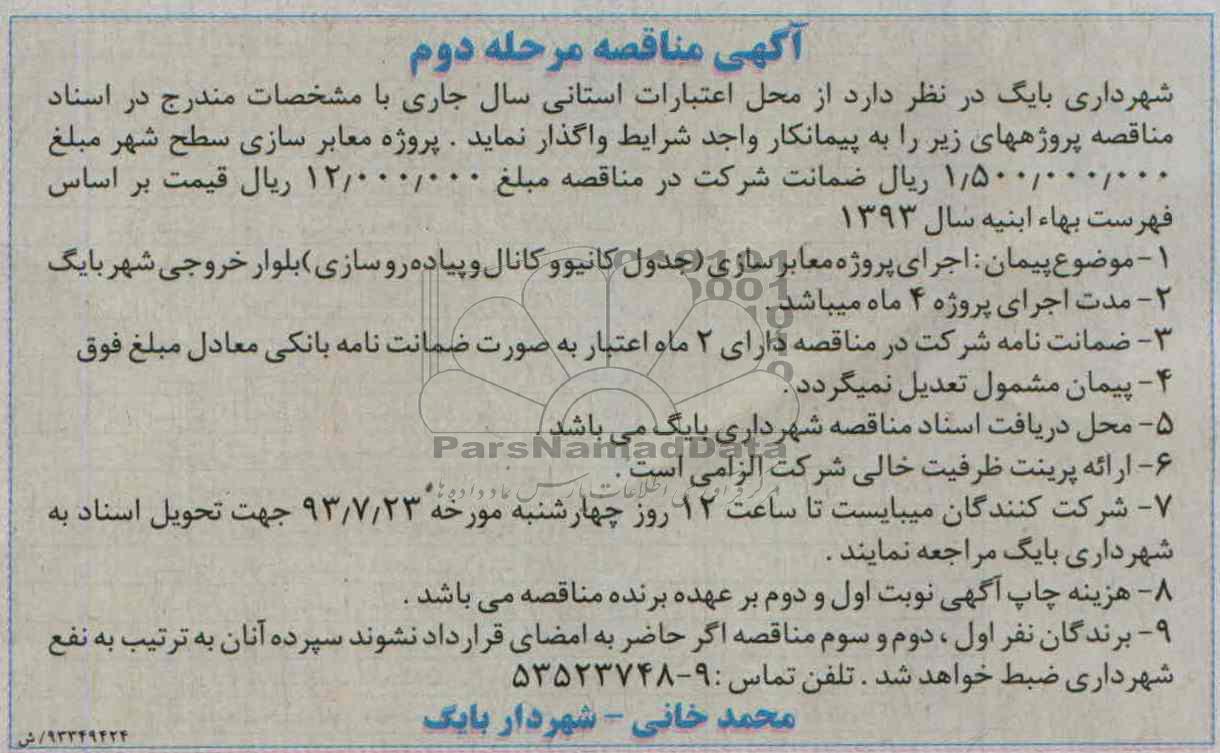 آگهی مناقصه مرحله دوم
شهرداری بایگ در نظر دارد از محل اعتبارات استانی سال جاری با مشخصات مندرج در اسناد
مناقصه پروژههای زیر را به پیمانکار واجد شرایط واگذار نماید . پروژه معابر سازی سطح شهر مبلغ
۱/۵۰۰/۰۰۰/۰۰۰ ریال ضمانت شرکت در مناقصه مبلغ ۱۲/۰۰۰/۰۰۰ ریال قیمت بر اساس
فهرست بهاء ابنیه سال ۱۳۹۳
۱- موضوع پیمان : اجرای پروژه معابر سازی (جدول کانیوو کانال و پیاده رو سازی) بلوار خروجی شهر بایگ
۲- مدت اجرای پروژه ۴ ماه میباشد .
۳- ضمانت نامه شرکت در مناقصه دارای ۲ ماه اعتبار به صورت ضمانت نامه بانکی معادل مبلغ فوق
۴- پیمان مشمول تعدیل نمیگردد .
۵- محل دریافت اسناد مناقصه شهرداری بایگ می باشد .
ParsNamadData
۶- ارائه پرینت ظرفیت خالی شرکت الزامی است .
۷- شرکت کنندگان میبایست تا ساعت ۱۲ روز چهارشنبه مورخه ۹۳/۷/۲۳ جهت تحویل اسناد به
شهرداری بایگ مراجعه نمایند .
۸- هزینه چاپ آگهی نوبت اول و دوم بر عهده برنده مناقصه می باشد .
۹- برندگان نفر اول ، دوم و سوم مناقصه اگر حاضر به امضای قرارداد نشوند سپرده آنان به ترتیب به نفع
شهرداری ضبط خواهد شد . تلفن تماس : ۹-۵۳۵۲۳۷۴۸
محمد خانی - شهردار بایگ
۹۳۳۴۹۴۲۴/ش